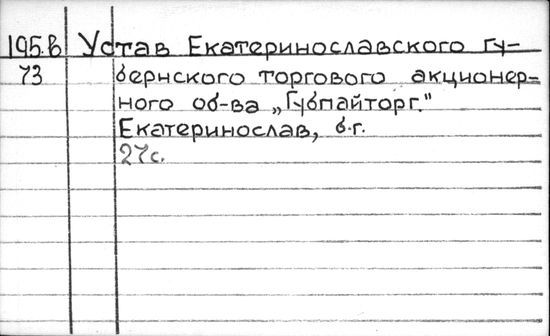 195.в Устав Екатеринославского Гу-
73 бернского торгового акционер-
ного об-ва „Губпайторг."
Екатеринослав, б.г.
27с.